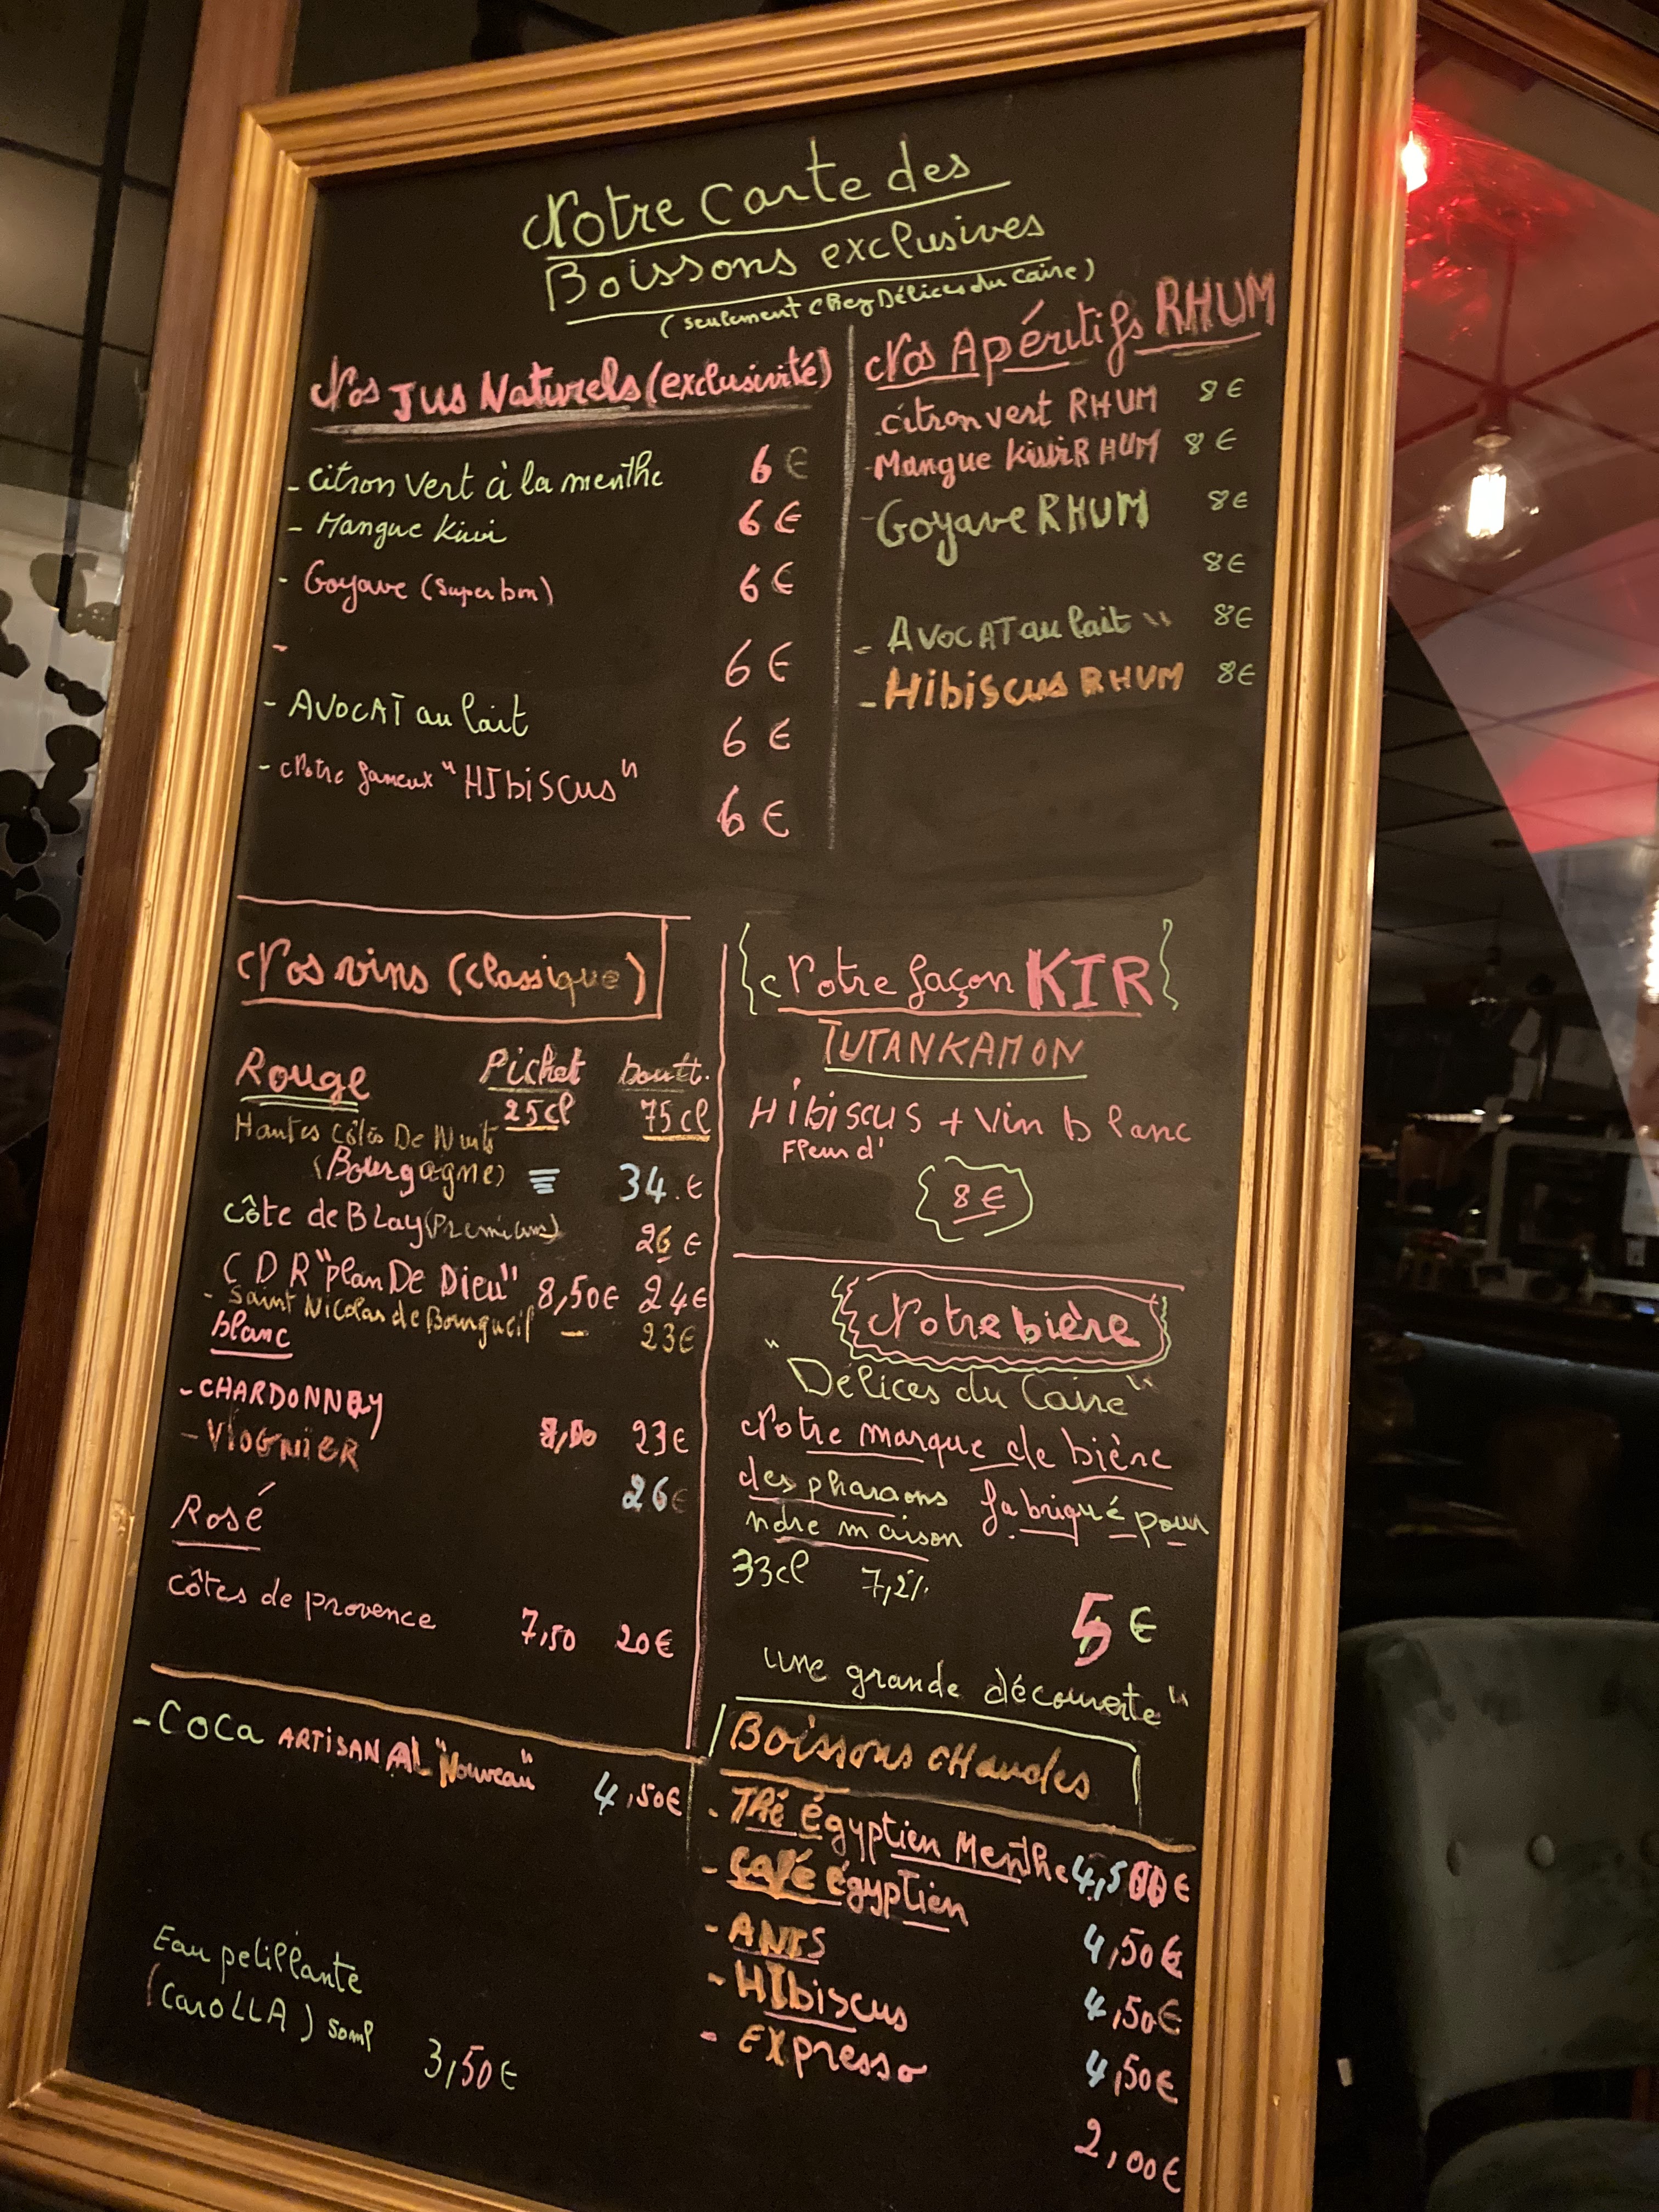 Notre Carte des
Boissons exclusives
(seulement chez Délices du Caire)
Nos Jus Naturels (exclusivité)
- citron vert à la menthe 6 €
- Mangue Kiwi 6 €
- Goyave (Super bon) 6 €
- 6 €
- AVOCAT au lait 6 €
- Notre fameux "HIbiscus" 6 €
Nos Apéritifs RHUM
citron vert RHUM 8 €
- Mangue kiwi RHUM 8 €
- Goyave RHUM 8€
8€
- AVOCAT au lait " 8€
- Hibiscus RHUM 8€
Nos vins (classique)
Rouge Pichet boutt.
25cl 75cl
Hautes Côtes De Nuits
(Bourgogne) 34.€
côte de BLay (Premium) 26 €
C D R "plan De Dieu" 8,50€ 24€
- Saint Nicolas de Bourgueil - 23€
blanc
- CHARDONNAY 23€
- VIOGNIER 26€
Rosé
côtes de provence 7,50 20€
Notre façon KIR
TUTANKAMON
Hibiscus + Vin blanc
Fleur d'
8 €
Notre bière
"Délices du Caire"
Notre marque de bière
des pharaons fabriqué pour
notre maison
33cl 7,2%
5 €
une grande découverte"
- COCA ARTISANAL "Nouveau" 4,50€
Eau petillante
(CaroLLA) 3,50€
Boissons CHaudes
- Thé égyptien Menthe 4,50€
- Café égyptien 4,50€
- ANIS 4,50€
- HIbiscus 4,50€
- EXpresso 2,00€